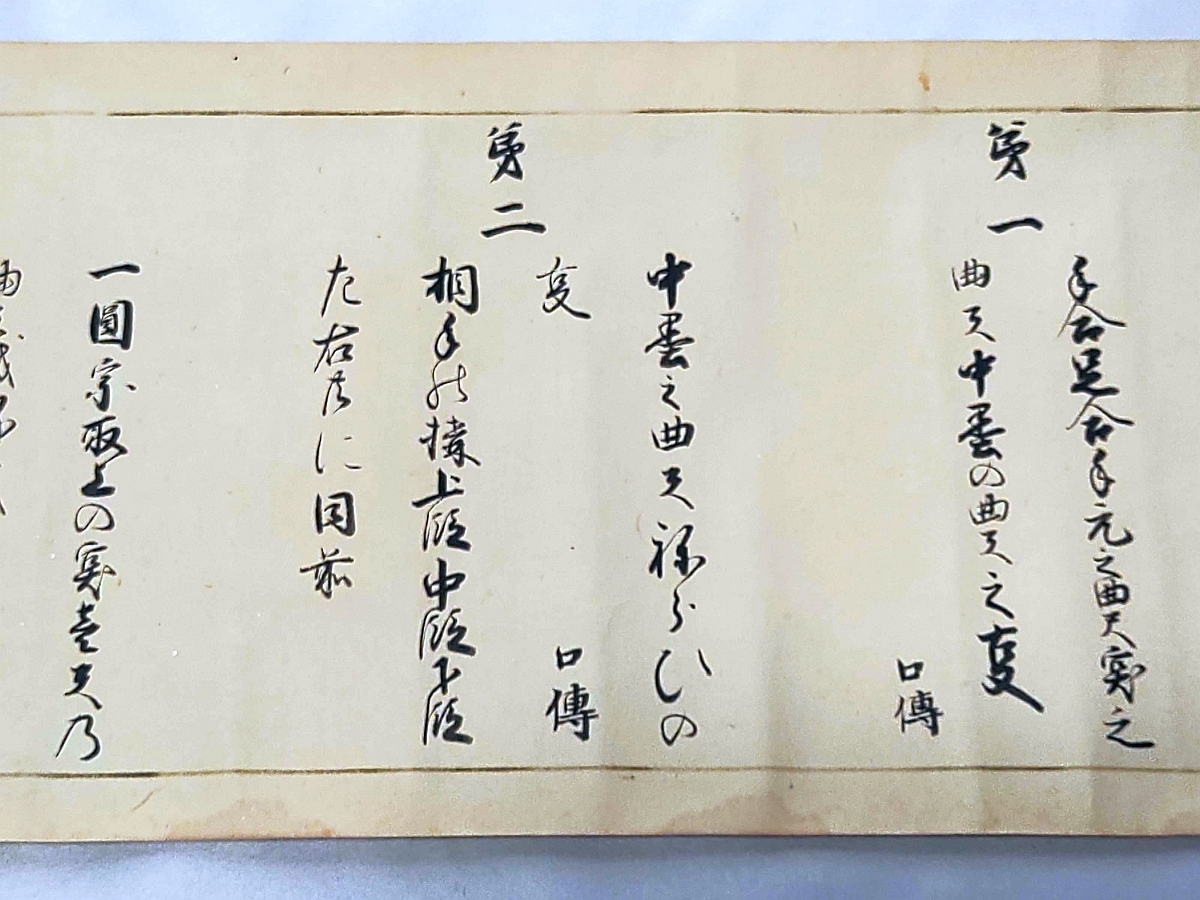 第一
手合足合手元之曲尺実之
曲尺中墨の曲尺之事
口傳
中墨之曲尺ねらひの
事
口傳
第二
相手の構上段中段下段
左右共に同前
一圓宗取上の実壹尺乃
曲